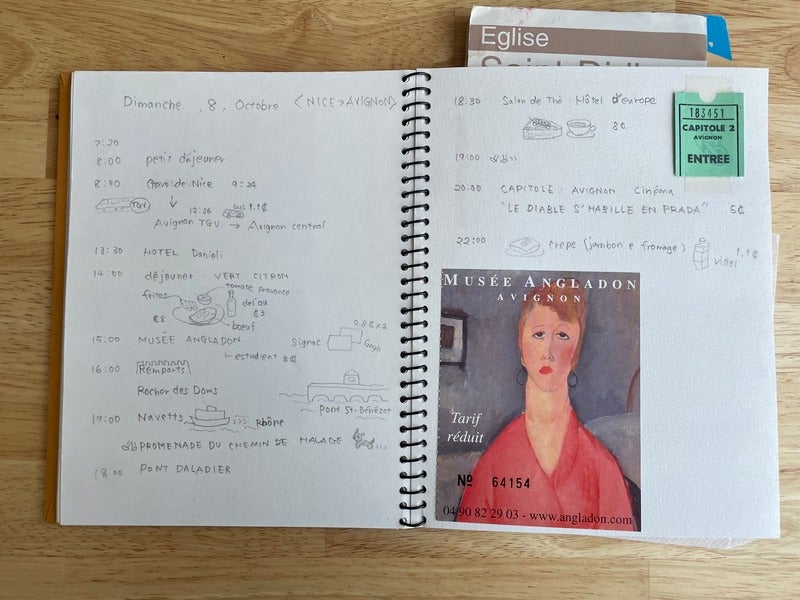 Eglise
Dimanche , 8, Octobre < NICE→AVIGNON>
7:20
8:00 petit déjeuner
8:00 Gare de Nice 9:24
TGV 12:36 bus 1.1€
Avignon TGV → Avignon central
13:30 HOTEL Danieli
14:00 déjeuner VERT CITRON
frites tomate provence
del'ou
€8 €3
boeuf
15:00 MUSÉE ANGLADON
0.8€×2
Signac Gogh
estudient 3€
16:00 Remparts
Rochor des Doms
PONT St-Bénézet
17:00 Navetts Rhône
PROMENADE DU CHEMIN DE HALAGE
18:00 PONT DALADIER
18:30 Salon de Thé Hôtel d'europe
8€
19:00
20:00 CAPITOLE AVIGNON Cinéma
"LE DIABLE S'HABILLE EN PRADA" 5€
22:00 crêpe (jambon e fromage)
1.1€
Vittel
183451
CAPITOLE 2
AVIGNON
ENTREE
MUSÉE ANGLADON
AVIGNON
Tarif
réduit
Nº 64154
04 90 82 29 03 - www.angladon.com